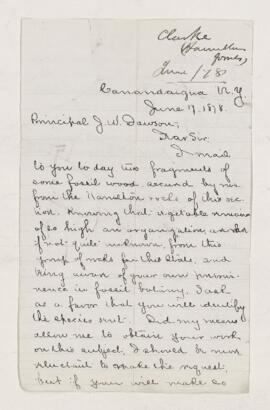 Clarke
(Hamilton
forms)
June /78
Canandaigua N.Y.
June 17. 1878.
Principal J. W. Dawson;
Dear Sir
I mail
to you to day two fragments of
some fossil wood secured by me
from the Hamilton rocks of this sec-
tion. Knowing that vegetable remains
of so high an organization, are
if not quite unknown, from this
group of rocks for this State, and
being aware of your own promi-
nence in fossil botany, I ask
as a favor that you will identify
the species sent. Did my means
allow me to obtain your work
on this subject, I should be more
reluctant to make the request,
but if you will make so